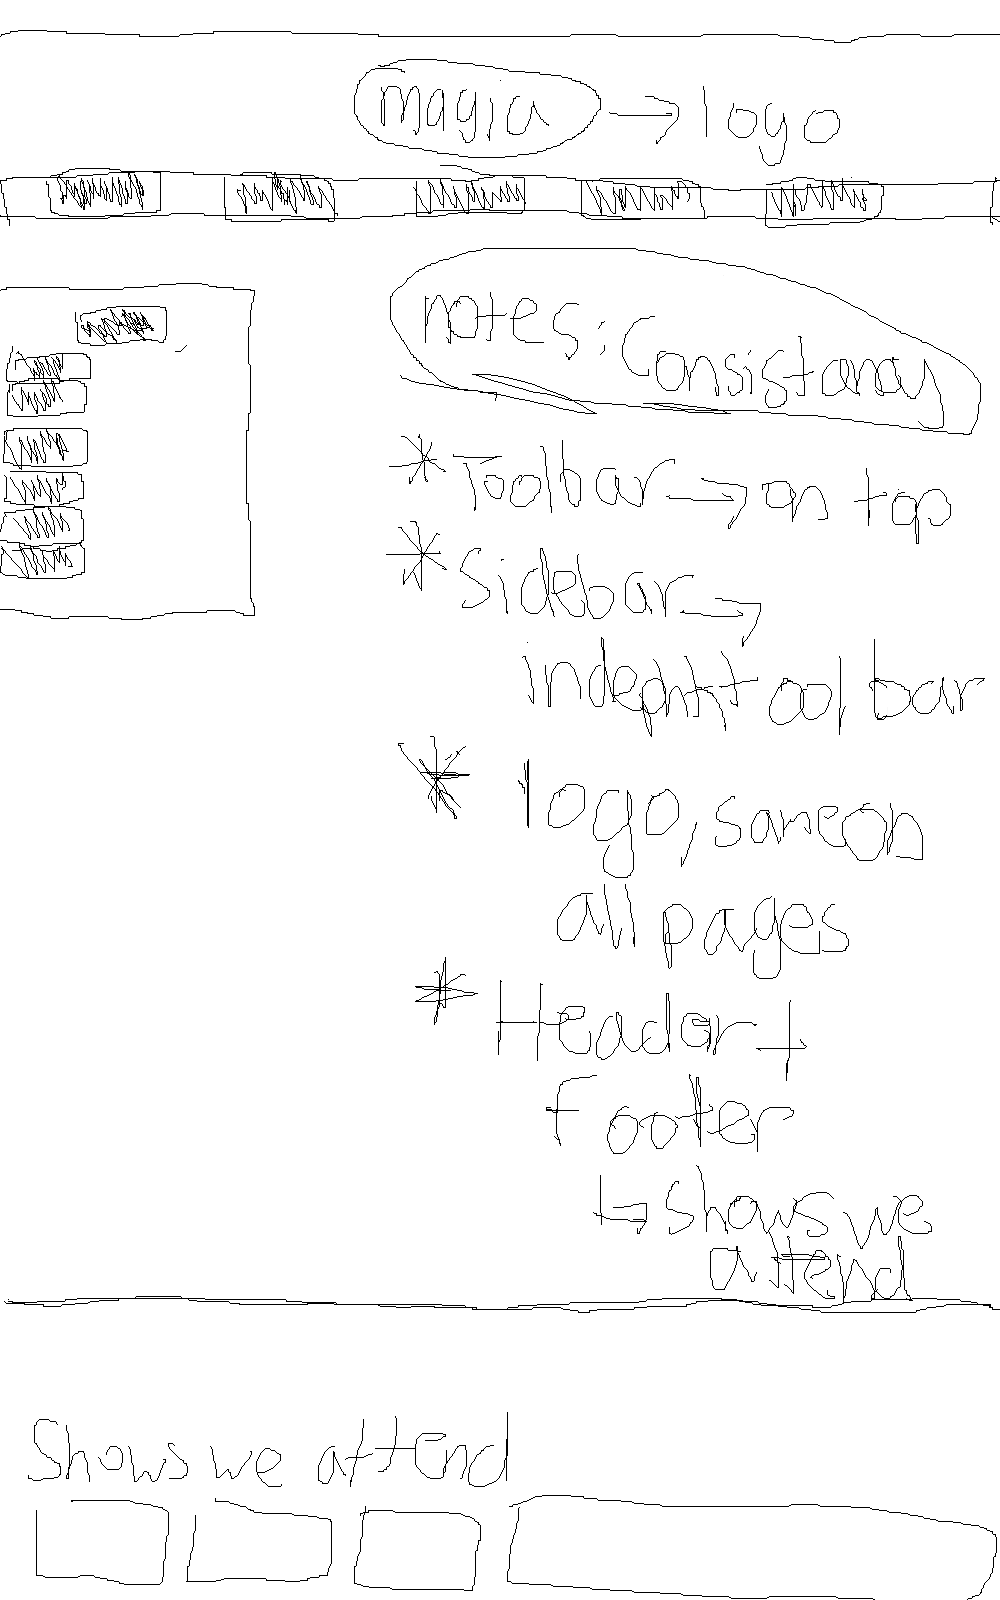 magia → logo
notes: Consistancy
* Toolbar → on top
* Sidebar →
indepht toolbar
* logo, same on
all pages
* Header +
Footer
↳ shows we
attend
Shows we attend